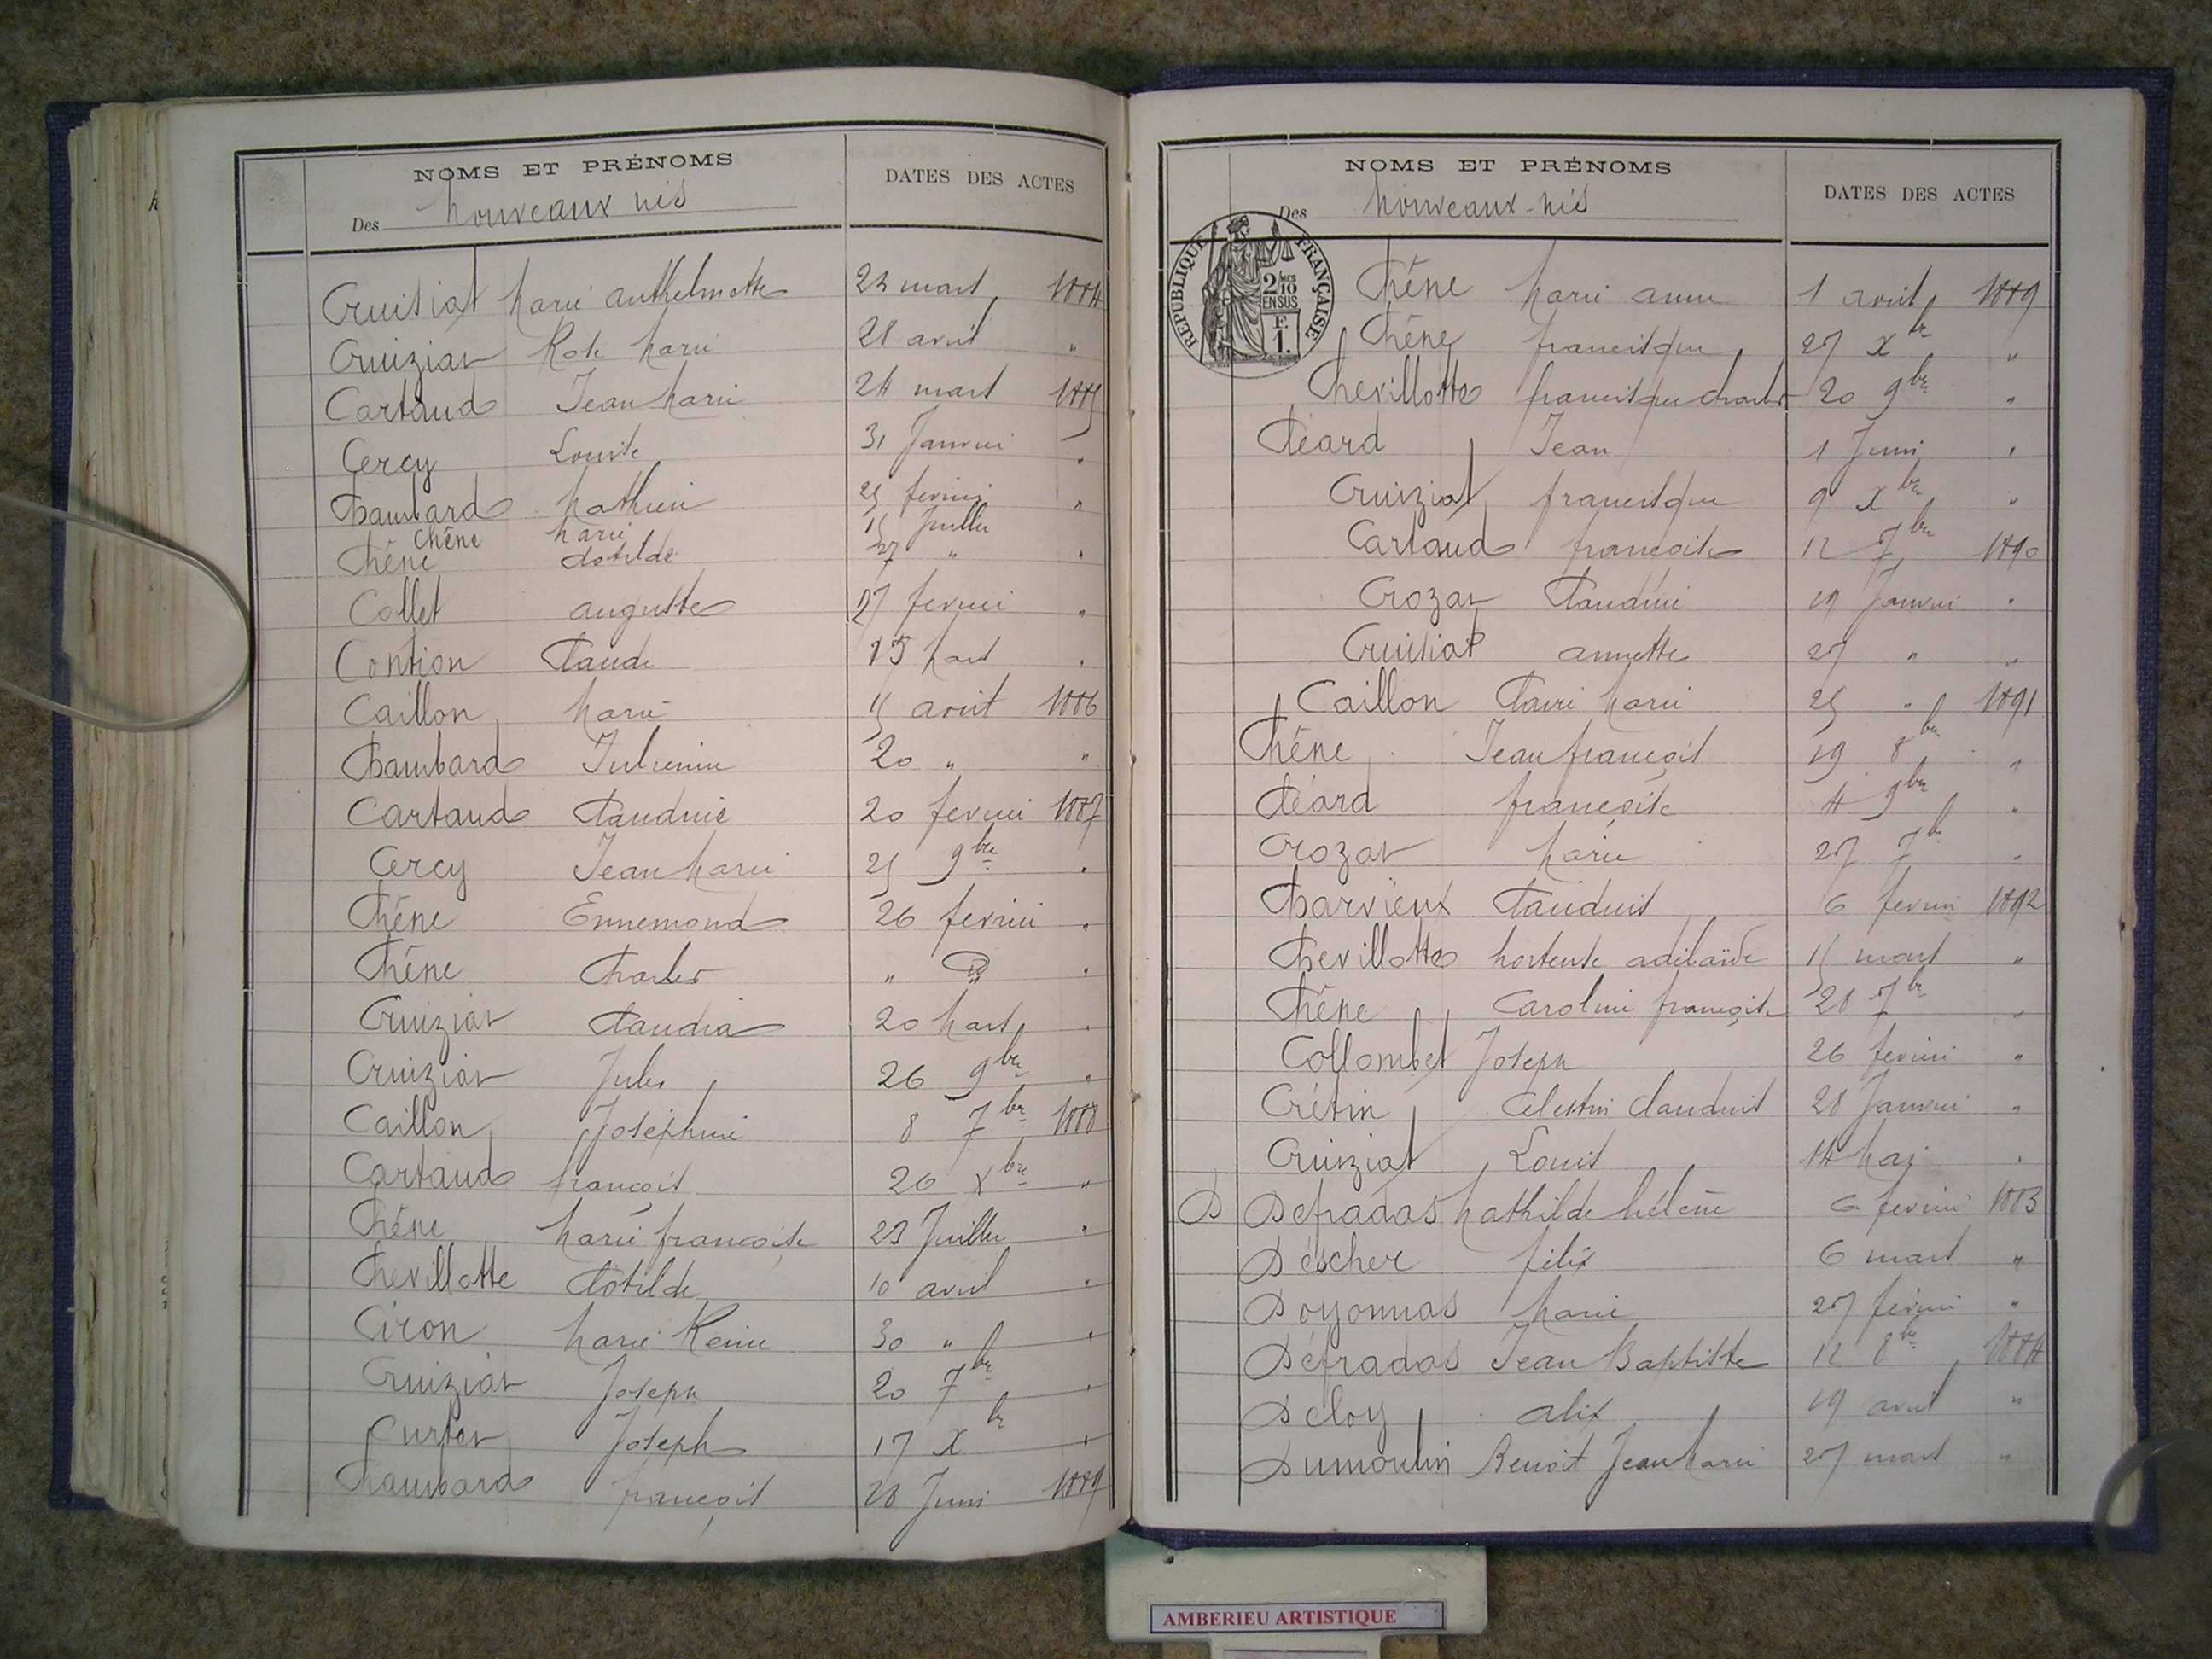 NOMS ET PRÉNOMS
DATES DES ACTES
Des nouveaux nés
Cruisiat Marie Anthelmette 23 mars 1884
Cruiziat Rose Marie 28 avril "
Cartaud Jean Marie 24 mars 1885
Cercy Louise 31 Janvier "
Chambard Mathieu 25 fevrier "
Chêne Marie 15 Juillet
Chêne Clotilde 27 " "
Collet Auguste 27 fevrier "
Contion Claude 15 Mars "
Caillon Marie 15 août 1886
Chambard Julienne 20 " "
Cartaud Claudine 20 fevrier 1887
Cercy Jean Marie 25 9bre "
Chêne Ennemond 26 fevrier "
Chêne Charles " "
Cruiziat Claudia 20 Mars "
Cruiziat Jules 26 9bre "
Caillon Joséphine 8 7bre 1888
Cartaud françois 26 Xbre "
Chêne Marie françoise 23 Juillet "
Chevillotte Clotilde 10 avril "
Ciron Marie Reine 30 " "
Cruiziat Joseph 20 7bre "
Curtet Joseph 17 Xbr "
Chambard françois 28 Juin 1889
NOMS ET PRÉNOMS
DATES DES ACTES
Des nouveaux-nés
RÉPUBLIQUE FRANÇAISE
2/10MES
EN SUS
F.
1.
Chêne Marie Anne 1 avril 1889
Chêne francisque 27 Xbr "
Chevillotte francisque Charles 20 9bre "
Cléard Jean 1 Juin "
Cruiziat francisque 9 Xbre "
Cartaud françoise 12 7bre 1890
Crozat Claudine 19 Janvier "
Cruisiat annette 27 " "
Caillon Claire Marie 25 " 1891
Chêne Jean françois 19 8bre "
Cléard françoise 4 9bre "
Crozat Marie 27 7b "
Charvieux Claudius 6 fevrier 1892
Chevillotte hortense adélaïde 15 mars "
Chêne Caroline françoise 28 7bre "
Collombet Joseph 26 fevrier "
Crétin Celestin Claudius 28 Janvier "
Cruiziat Louis 14 Mai "
D Defradas Mathilde hélène 6 fevrier 1883
Déscher félix 6 mars "
Doyonnas Marie 27 févrie "
Défradas Jean Baptiste 12 8bre 1884
Décloy alix 19 avril "
Dumoulin Benoit Jean Marie 27 mars "
AMBERIEU ARTISTIQUE